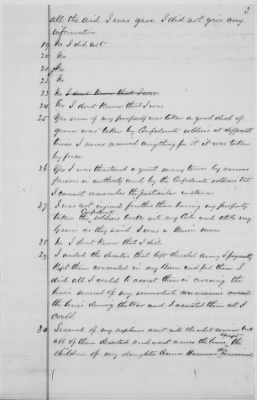 3
all the aid I ever gave I did not give any
information
19 No I did not
20 No
21 No
22 No
23 No I dont know that I ever
24 No I dont know that I was
25 Yes some of my property was taken a good deal of
grain was taken by Confederate soldiers at different
times I never received anything for it it was taken
by force
26 Yes I was threatened a great many times by various
persons in authority and by the Confederate soldiers but
I cannot remember the particular instances
27 I was not injured further than having my property
taken the Confederate soldiers broke into my and stole my
Grain as they said I was a Union man
28 No I dont know that I did
29 I aided the deserters that left the rebel army I frequently
kept them concealed in my House and fed them I
did all I could to assist them in crossing the
lines several of my immediate acquaintances crossed
the lines during the War and I assisted them all I
could
30 Several of my nephews went into the rebel service but
all of them deserted and went across the lines except the
children of my daughter Anna